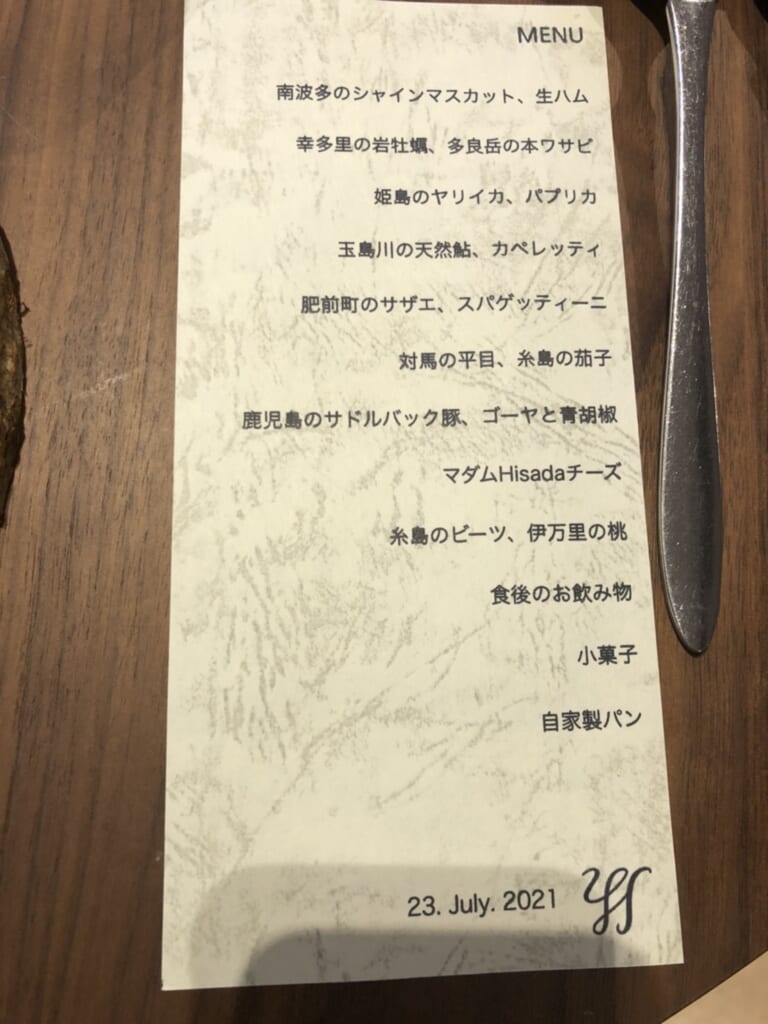 MENU
南波多のシャインマスカット、生ハム
幸多里の岩牡蠣、多良岳の本ワサビ
姫島のヤリイカ、パプリカ
玉島川の天然鮎、カペレッティ
肥前町のサザエ、スパゲッティーニ
対馬の平目、糸島の茄子
鹿児島のサドルバック豚、ゴーヤと青胡椒
マダムHisadaチーズ
糸島のビーツ、伊万里の桃
食後のお飲み物
小菓子
自家製パン
23. July. 2021